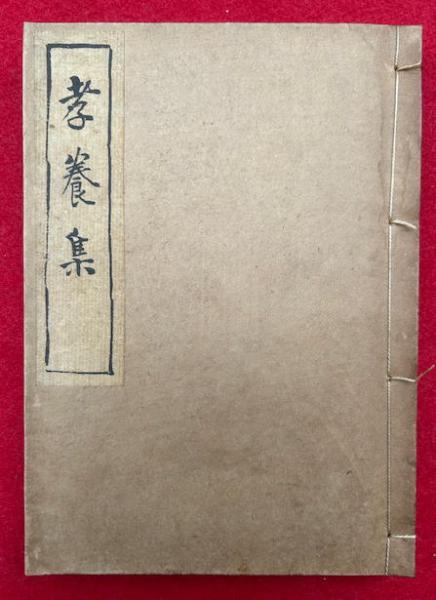 孝養集